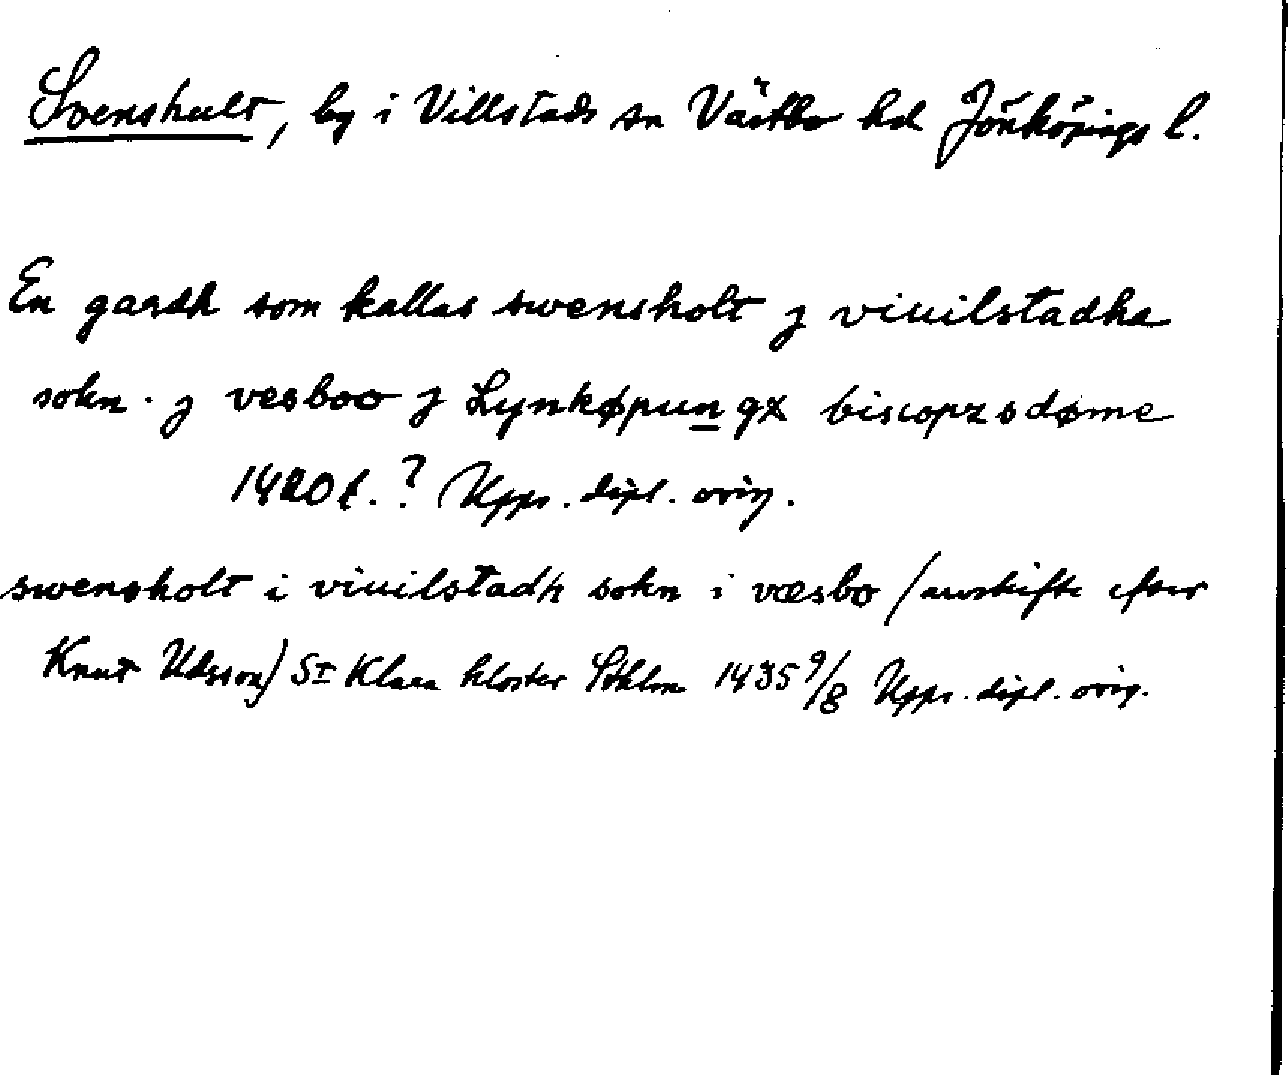 Svenshult, by i Villstads sn Västbo hd Jönköpings l.
En gardh som kallas swensholt j viuilstadha
sokn. j vesboo j Lynkøpungx biscopzsdøme
1420 t.? Upps. dipl. orig.
swensholt i viuilstadh sokn i væsbo (arvskifte efter
Knut Udsson) St Klara kloster Sthlm 1435 9/8 Upps. dipl. orig.